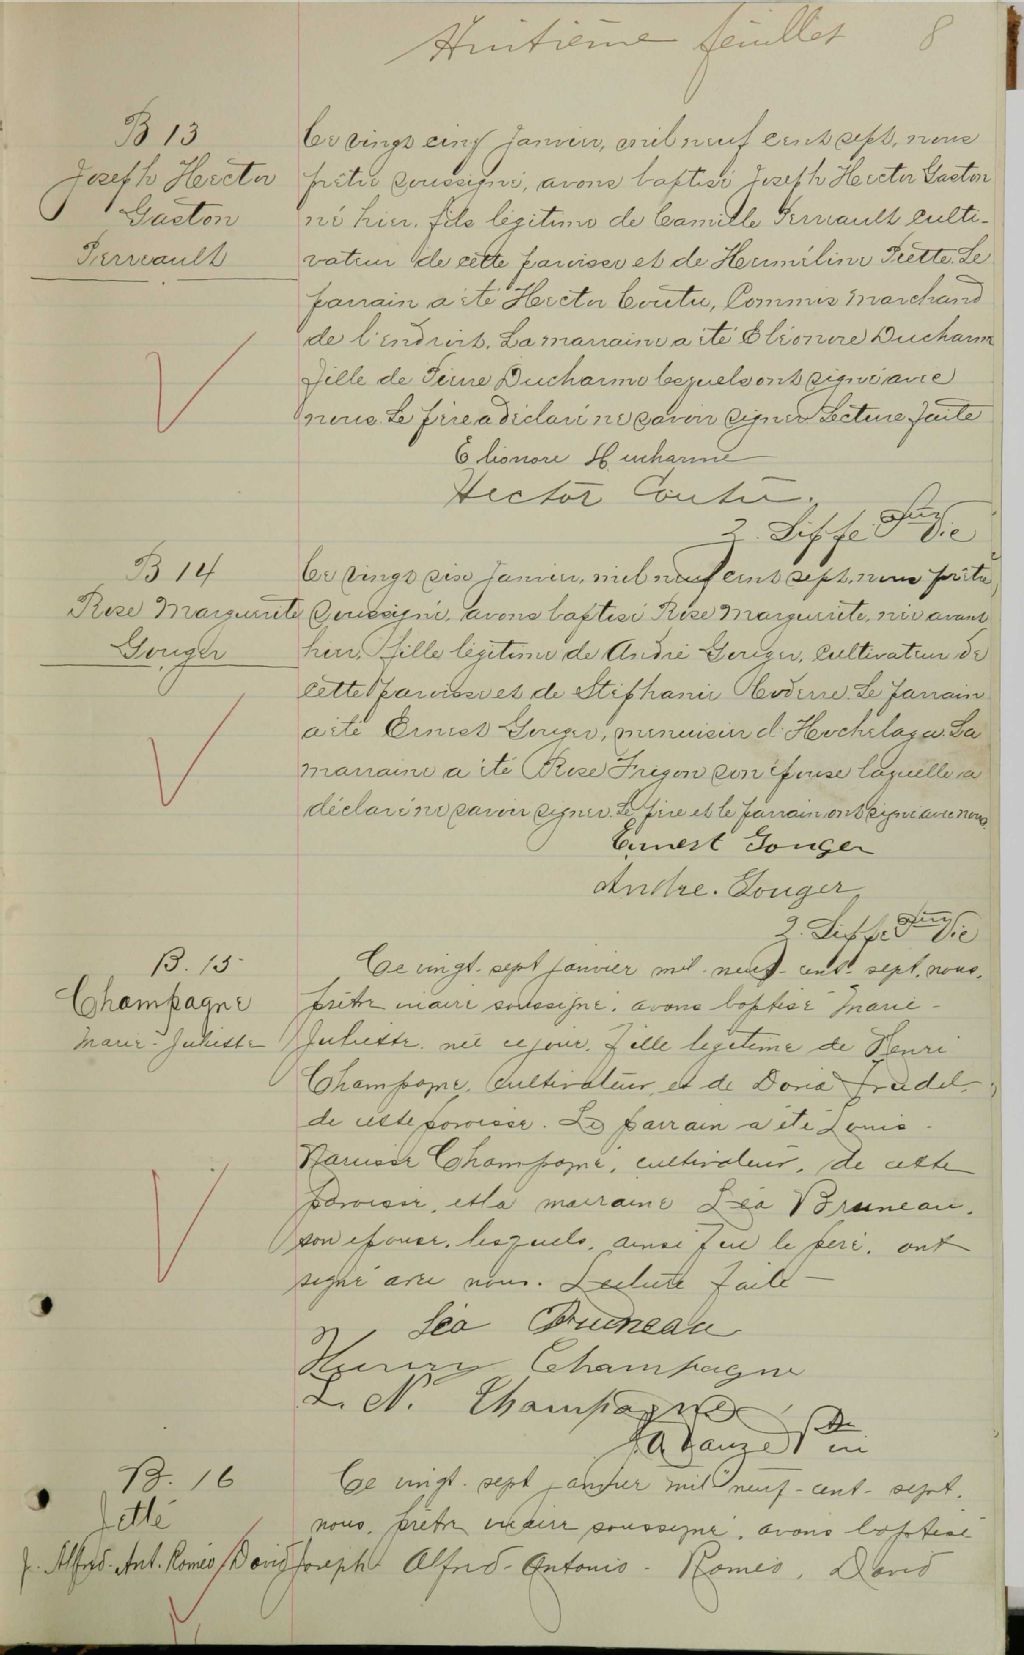 Huitième feuillet 8
B 13
Joseph Hector
Gaston
Perreault
Ce vingt cinq Janvier, mil neuf cent sept, nous
prêtre soussigné, avons baptisé Joseph Hector Gaston
né hier, fils légitime de Camille Perreault culti-
vateur de cette paroisse et de Herméline Piette. Le
parrain a été Hector Coutu, Commis Marchand
de l'endroit. La marraine a été Eléonore Ducharme
fille de Pierre Ducharme lesquels ont signé avec
nous. Le père a déclaré ne savoir signer Lecture faite
Elionore Ducharme
Hector Coutu.
Z. Siffe Ptre Vic
B 14
Rose Marguerite
Gouger
Ce vingt six Janvier, mil neuf cent sept, nous prêtre
soussigné, avons baptisé Rose Marguerite, née avant
hier, fille légitime de André Gouger, cultivateur de
cette paroisse et de Stéphanie Coderre. Le parrain
a été Ernest Gouger, menuisier d'Hochelaga. La
marraine a été Rose Frégon son épouse laquelle a
déclaré ne savoir signer. Le père et le parrain ont signé avec nous.
Ernest Gouger
Andre. Gouger
Z. Siffe Ptre Vic
B. 15
Champagne
Marie-Juliette
Ce vingt-sept janvier mil-neuf-cent-sept, nous,
prêtre vicaire soussigné, avons baptisé Marie-
Juliette, née ce jour, fille légitime de Henri
Champagne, cultivateur, et de Doria Trudel,
de cette paroisse. Le parrain a été Louis-
Narcisse Champagne, cultivateur, de cette
paroisse, et la marraine Léa Bruneau,
son épouse, lesquels, ainsi que le père, ont
signé avec nous. Lecture faite—
Léa Bruneau
Henry Champagne
L. N. Champagne
Ptre vic
B. 16
Jetté
J. Alfred-Ant. Roméo, David
Ce vingt-sept janvier mil neuf-cent-sept,
nous, prêtre vicaire soussigné, avons baptisé
Joseph Alfred-Antonio-Roméo, David